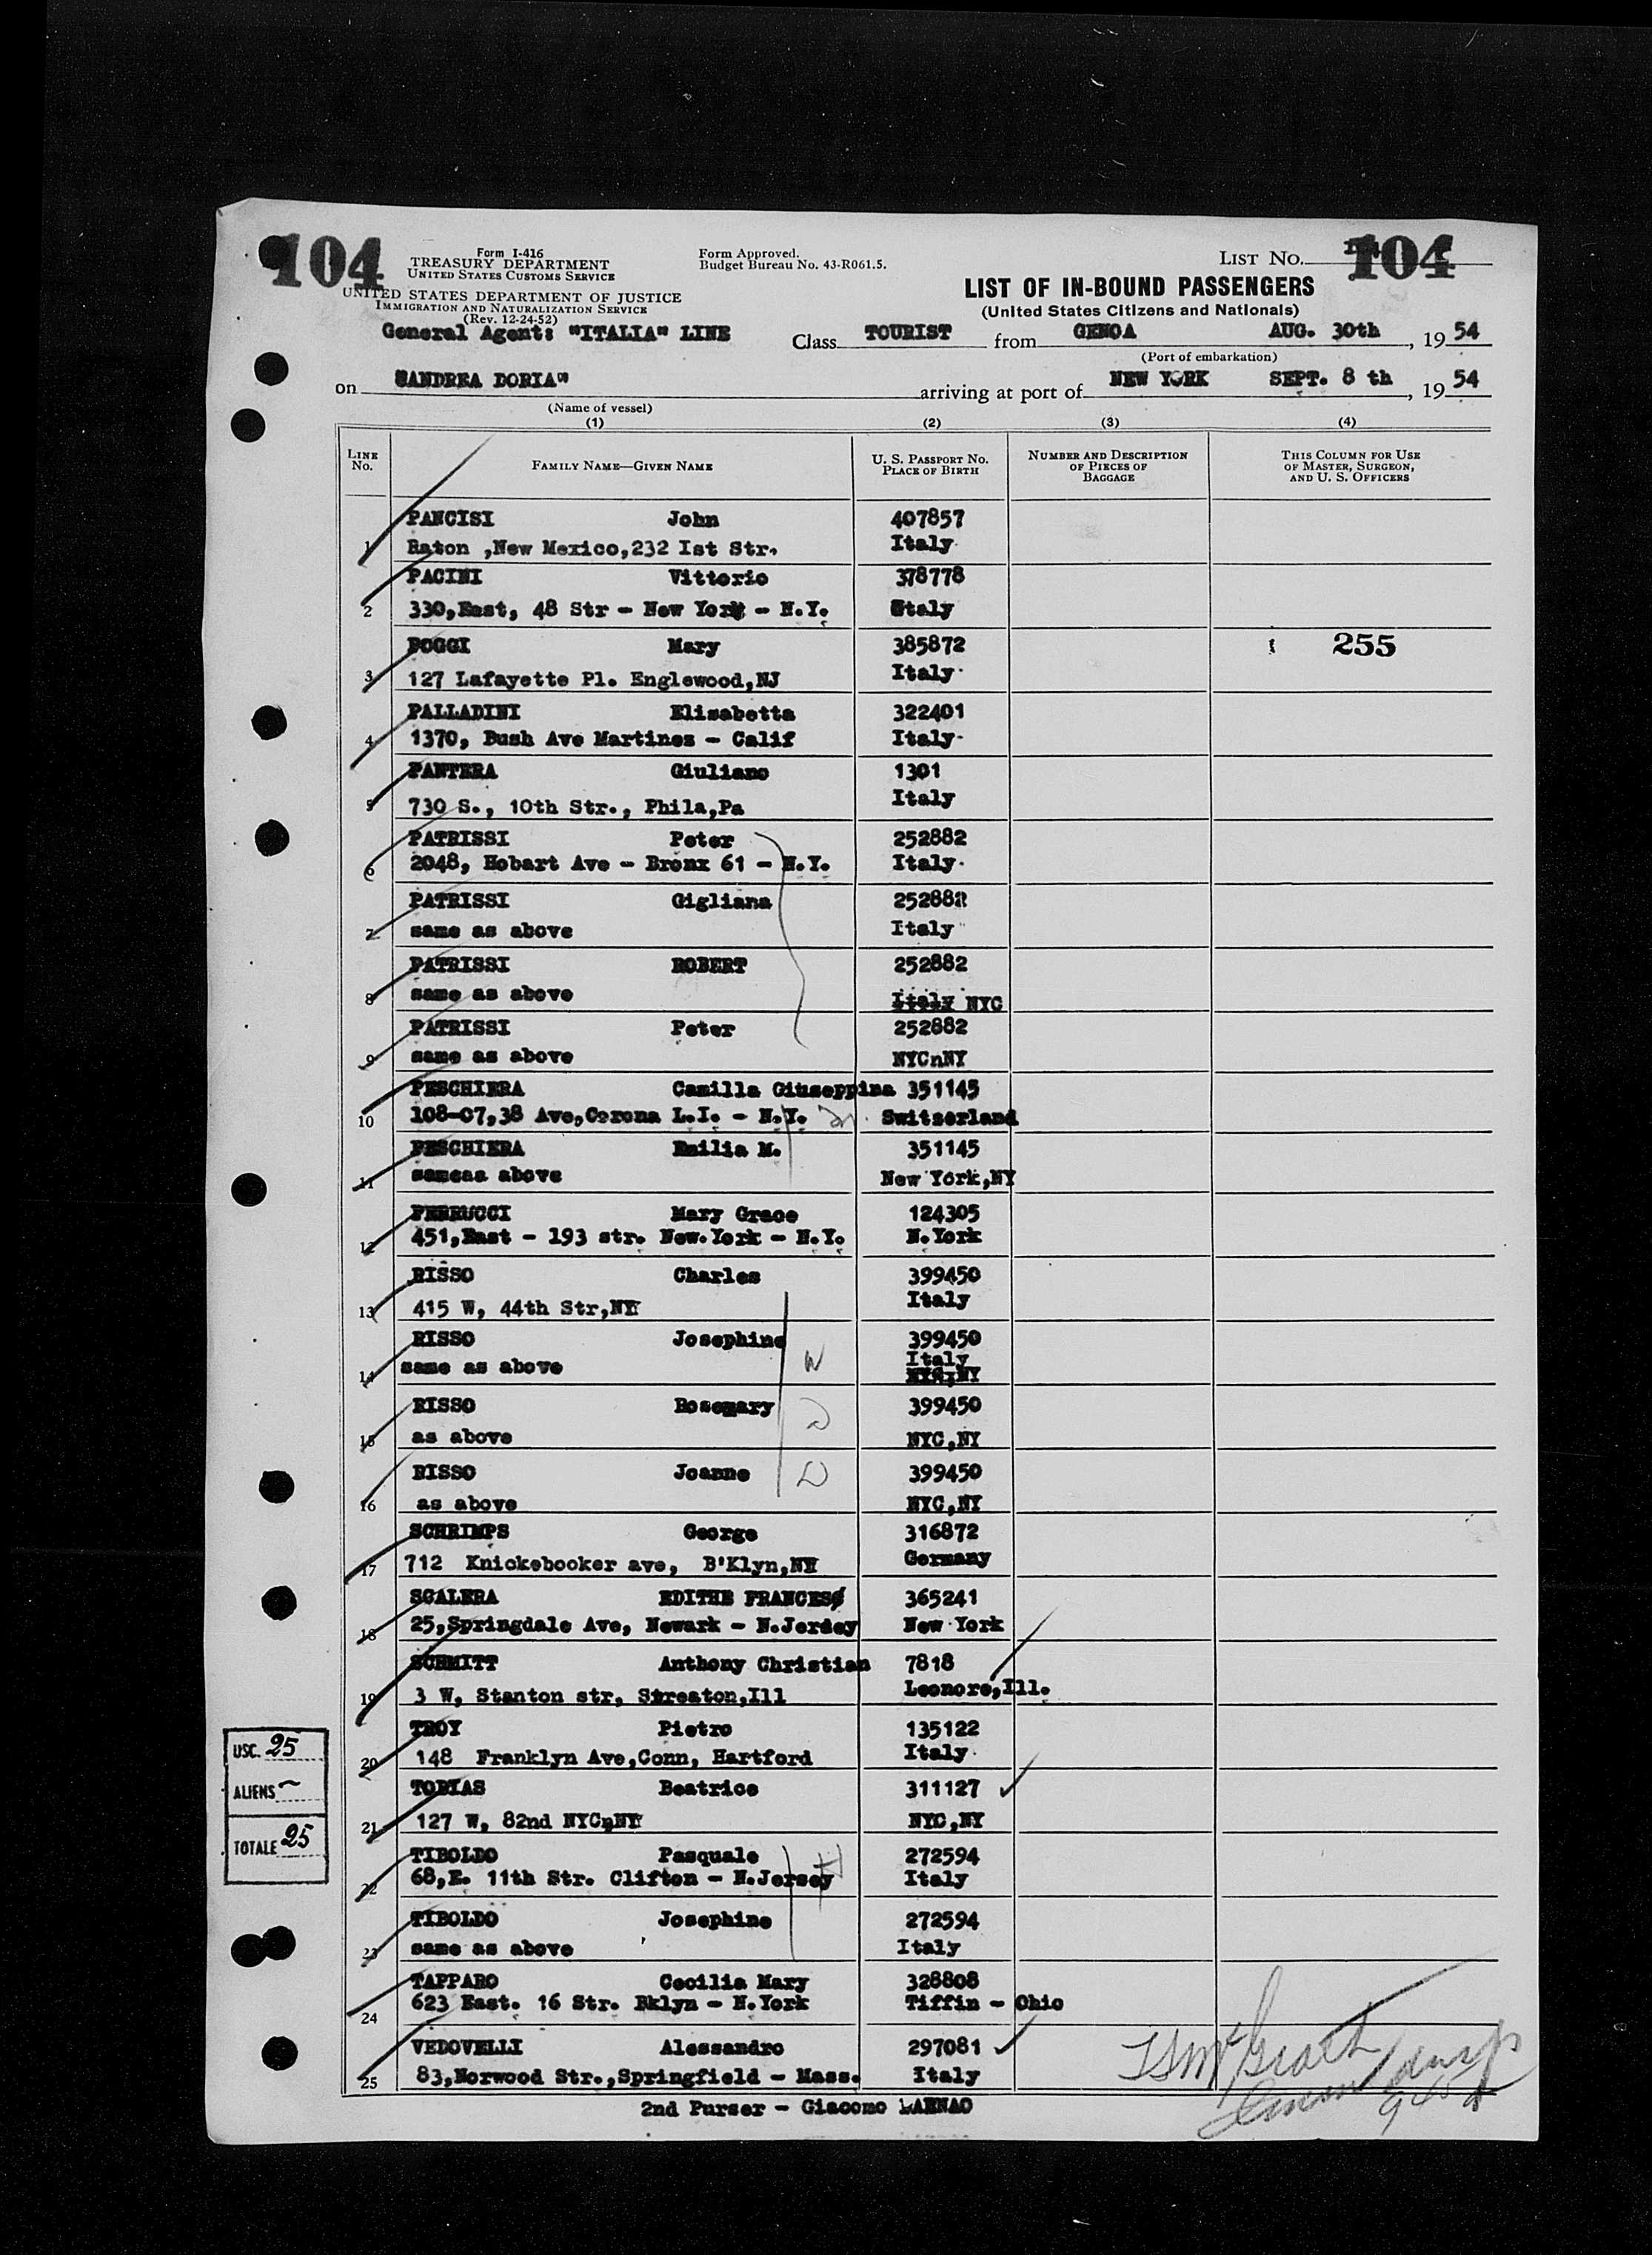 104
Form I-416
TREASURY DEPARTMENT
UNITED STATES CUSTOMS SERVICE
UNITED STATES DEPARTMENT OF JUSTICE
IMMIGRATION AND NATURALIZATION SERVICE
(Rev. 12-24-52)
Form Approved.
Budget Bureau No. 43-R061.5.
LIST NO. 104
LIST OF IN-BOUND PASSENGERS
(United States Citizens and Nationals)
General Agent: "ITALIA" LINE Class TOURIST from GENOA AUG. 30th, 1954
(Port of embarkation)
on "ANDREA DORIA" arriving at port of NEW YORK SEPT. 8 th, 1954
(Name of vessel)
(1) (2) (3) (4)
LINE No. FAMILY NAME—GIVEN NAME U. S. PASSPORT NO. PLACE OF BIRTH NUMBER AND DESCRIPTION OF PIECES OF BAGGAGE THIS COLUMN FOR USE OF MASTER, SURGEON, AND U. S. OFFICERS
PANCISI John 407857
1 Raton ,New Mexico,232 Ist Str. Italy
PACINI Vittorio 378778
2 330,East, 48 Str - New York - N.Y. Italy
POGGI Mary 385872 255
3 127 Lafayette Pl. Englewood,NJ Italy
PALLADINI Elisabetta 322401
4 1370, Bush Ave Martinez - Calif Italy
PANTERA Giuliano 1301
5 730 S., 10th Str., Phila,Pa Italy
PATRISSI Peter 252882
6 2048, Hobart Ave - Bronx 61 - N.Y. Italy
PATRISSI Gigliana 252882
7 same as above Italy
PATRISSI ROBERT 252882
8 same as above Italy NYC
PATRISSI Peter 252882
9 same as above NYCnNY
PESCHIERA Camilla Giuseppina 351145
10 108-07,38 Ave,Corona L.I. - N.Y. Switzerland
PESCHIERA Emilia M. 351145
11 sameas above New York,NY
PERRUCCI Mary Grace 124305
12 451,East - 193 str. New.York - N.Y. N.York
RISSO Charles 399450
13 415 W, 44th Str,NY Italy
RISSO Josephine 399450
14 same as above W Italy
NYC,NY
RISSO Rosemary 399450
15 as above D NYC,NY
RISSO Joanne 399450
16 as above D NYC,NY
SCHRIMPS George 316872
17 712 Knickebooker ave, B'Klyn,NY Germany
SCALERA EDITHE FRANCES 365241
18 25,Springdale Ave, Newark - N.Jersey New York
SCHMITT Anthony Christian 7818
19 3 W, Stanton str, Streaton,Ill Leonore,Ill.
TROY Pietro 135122
20 148 Franklyn Ave,Conn, Hartford Italy
TOBIAS Beatrice 311127
21 127 W, 82nd NYCnNY NYC,NY
TIBOLDO Pasquale 272594
22 68,E. 11th Str. Clifton - N.Jersey H Italy
TIBOLDO Josephine 272594
23 same as above Italy
TAPPARO Cecilia Mary 328808
24 623 East. 16 Str. Bklyn - N.York Tiffin - Ohio
VEDOVELLI Alessandro 297081
25 83,Norwood Str.,Springfield - Mass. Italy
2nd Purser - Giacomo
USC. 25
ALIENS -
TOTALE 25